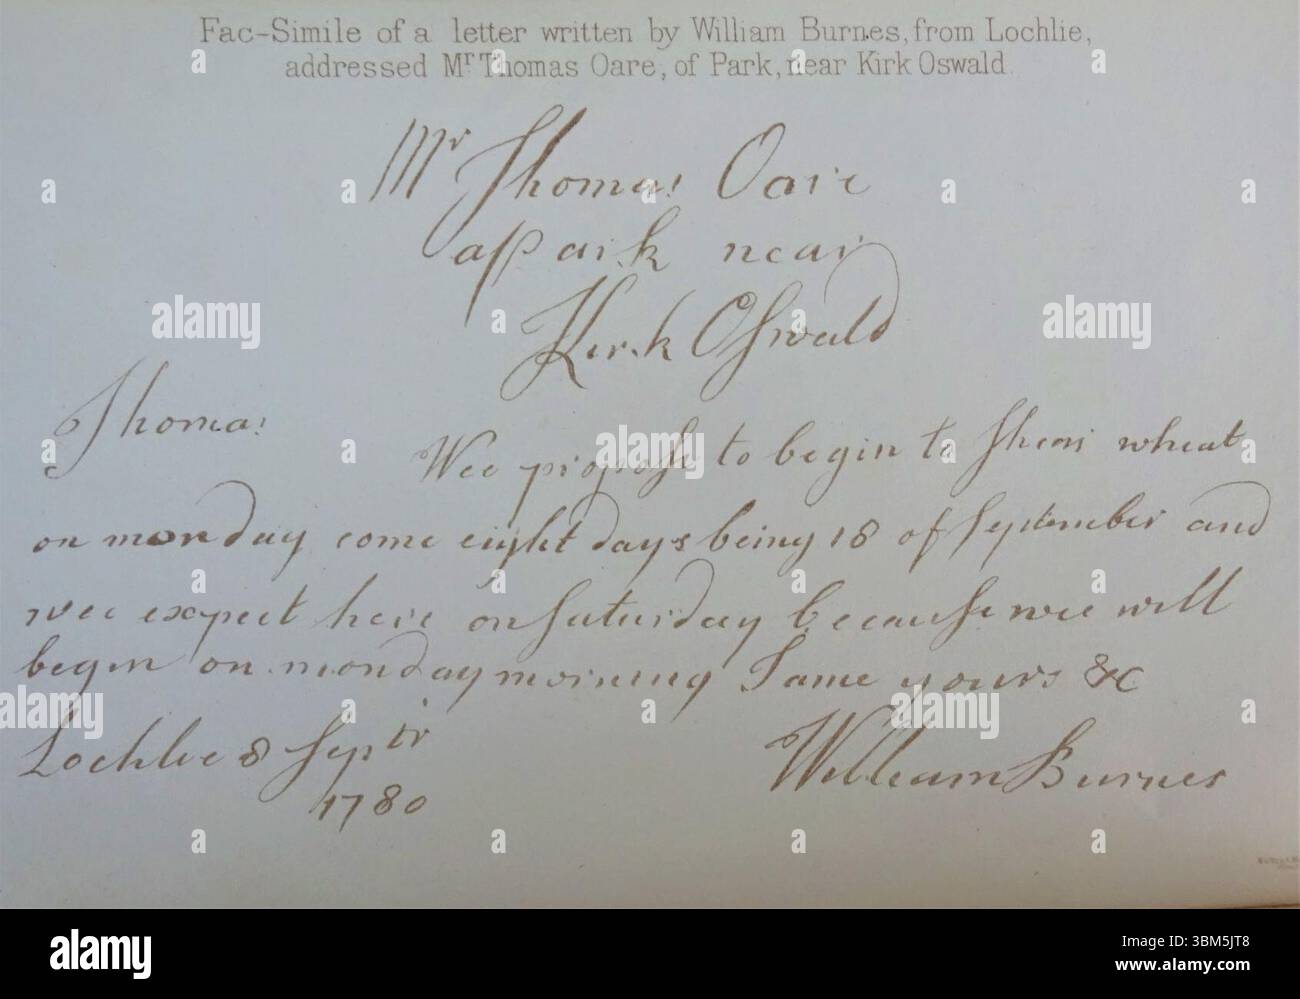 Fac-Simile of a letter written by William Burnes, from Lochlie,
addressed Mr Thomas Oare, of Park, near Kirk Oswald
Mr Thomas Oare
a Park near
Kirk Oswald
Thomas
Wee propose to begin to shear wheat
on monday come eight days being 18 of September and
wee expect here on Saturday because wee will
begin on monday morning I ame yours &c
Lochlie 8 Septr
William Burnes
1780
alamy
alamy
alamy
alamy
alamy
Image ID: 3BM5JT8
www.alamy.com